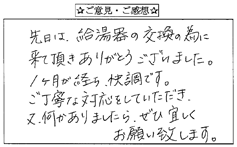 ☆ご意見・ご感想☆
先日は、給湯器の交換の為に
来て頂きありがとうございました。
1ヶ月が経ち、快調です。
ご丁寧な対応をしていただき、
又、何かありましたら、ぜひ宜しく
お願い致します。